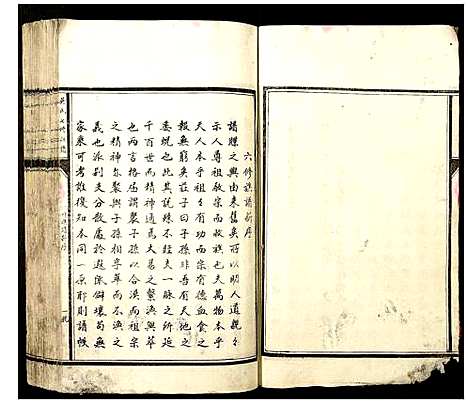 六修族譜前序
譜牒之興由來舊矣所以助人道親々
示人尊祖敬宗收族也夫萬物本乎
天人本乎祖々有功而宗有德血食之
報無窮矣莊子曰子孫非吾有天地之
委蛻也此其說殊不經夫一脉之所延
千百世而精神通焉大易之繫渙與萃
也兩言王格廟謂以合渙而聚祖宗
之精神亦聚與子孫相孚萃而不渙之
義也派別支分散處於遐陬僻壤苟無
家乘可考誰復知本同一原耶則譜帙